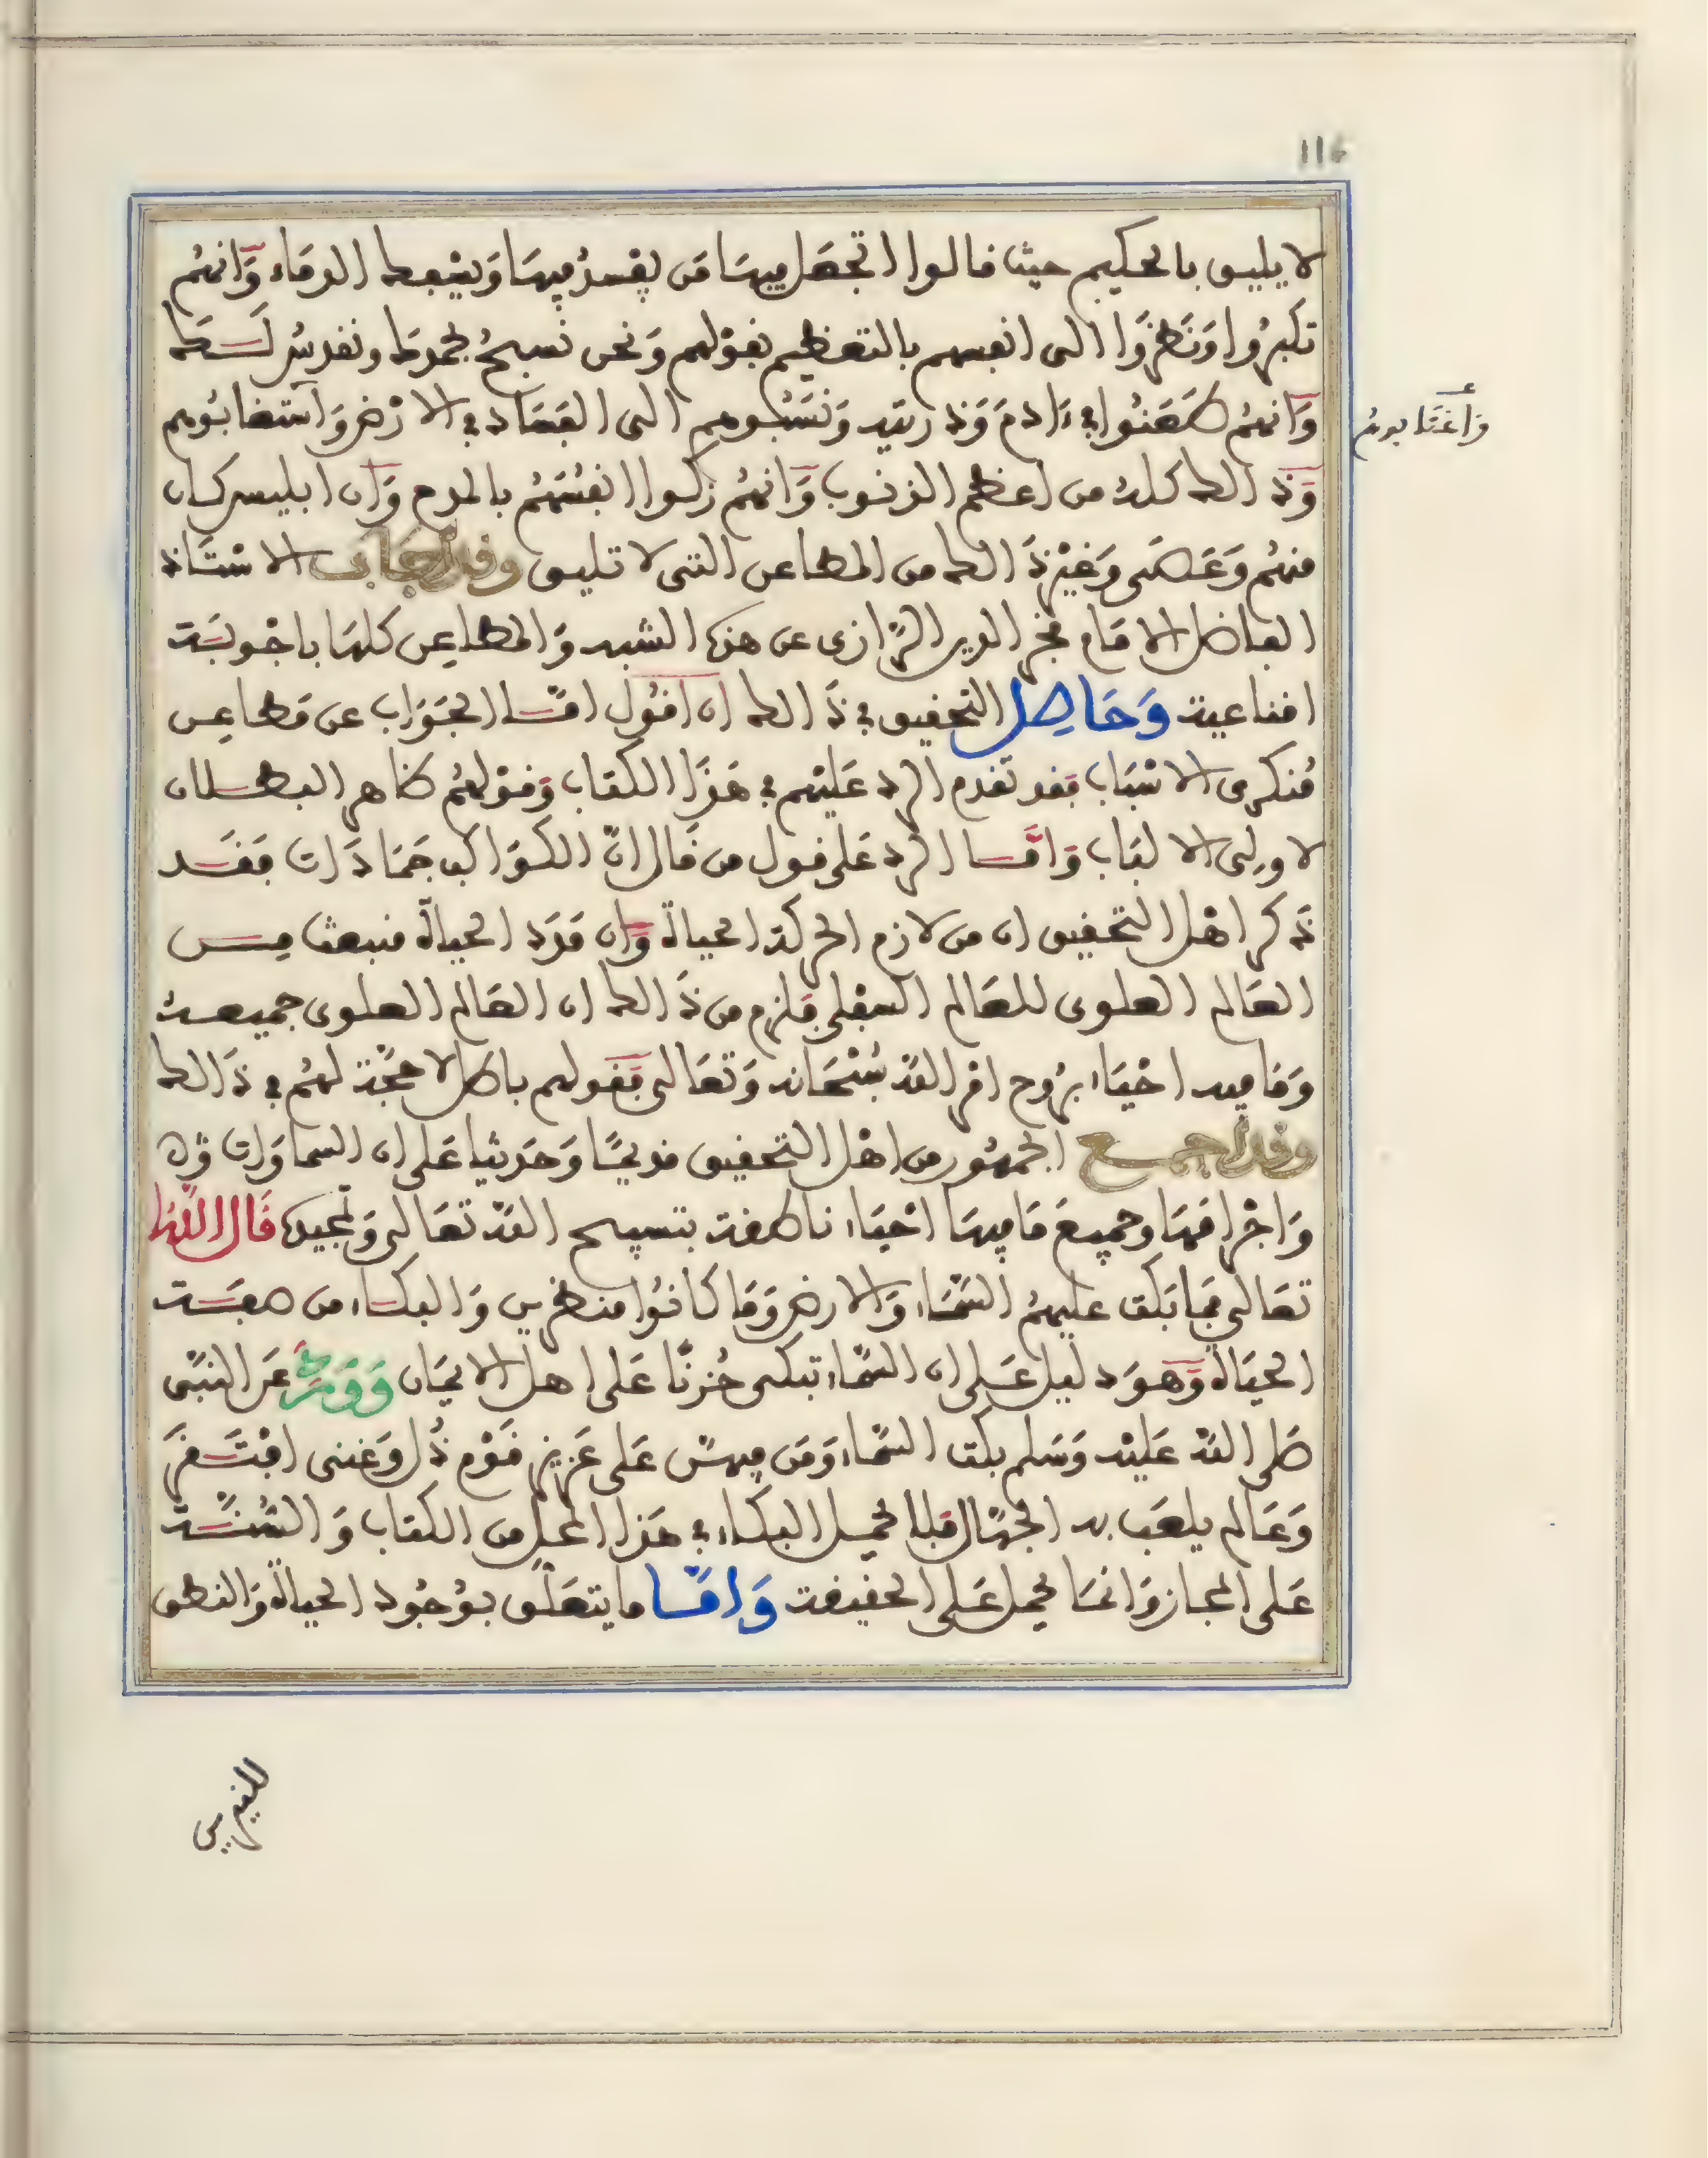 116
لا يليق بالحكيم حيث قالوا اتجعل فيها من يفسد فيها ويسفك الدماء وانهم
تكبروا ونظروا الى انفسهم بالتعظيم بقولهم ونحن نسبح بحمدك ونقدس لك
وانهم طعنوا في ءادم وذريته ونسبوهم الى الفساد في الارض واستغابوهم
واغتابوه
وذالك كله من اعظم الذنوب وانهم زكوا انفسهم بالمدح وان ابليس كان
منهم وعصى وغير ذالك من المطاعن التى لا تليق وقد اجاب الاستاذ
الفاضل الامام فخر الدين الرازى عن هذه الشبه والمطاعن كلها باجوبة
اقناعية وحاصل التحقيق في ذالك ان اقول اما الجواب عن مطاعن
منكرى الاسباب فقد تقدم الرد عليهم في هذا الكتاب وقولهم ظاهر البطلان
لاولى الالباب واما الرد على قول من قال ان الكواكب جمادات فقد
ذكر اهل التحقيق ان من لازم الحركة الحياة وان مدد الحياة منبعث من
العالم العلوى للعالم السفلى فلزم من ذالك ان العالم العلوى جميعه
وما فيه احياء بروح امر الله سبحانه وتعالى فقولهم باطل لا حجة لهم في ذالك
وقد اجمع الجمهور من اهل التحقيق قديما وحديثا على ان السماوات
واجرامها وجميع ما فيها احياء ناطقة بتسبيح الله تعالى وتمجيده قال الله
تعالى فما بكت عليهم السماء والارض وما كانوا منظرين والبكاء من صفة
الحياة وهو دليل على ان السماء تبكى حزنا على اهل الايمان وورد عن النبى
صلى الله عليه وسلم بكت السماء ومن فيهن على عزيز قوم ذل وغنى افتقر
وعالم يلعب به الجهال فلا يحمل البكاء في هذا المحل من الكتاب والسنة
على المجاز وانما يحمل على الحقيقة واما ما يتعلق بوجود الحياة والنطق
للنيرين